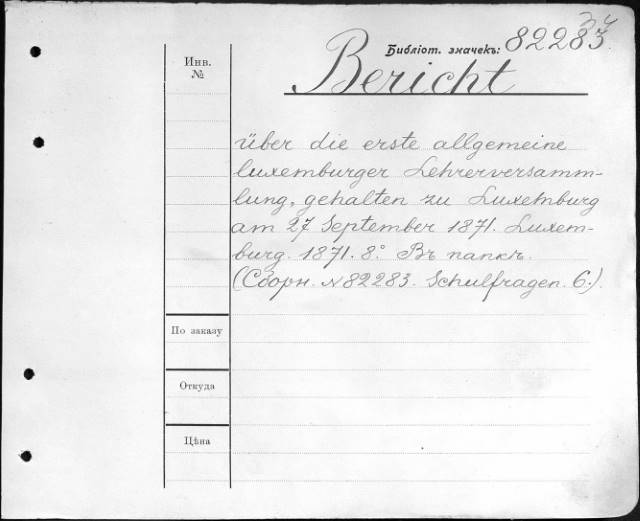 34
Библіот. значекъ: 82283.
Инв.
№
Bericht
über die erste allgemeine
luxemburger Lehrerversamm-
lung, gehalten zu Luxemburg
am 27 September 1871. Luxem-
burg. 1871. 8°. Въ папкѣ.
(Сборн. №82283. Schulfragen. 6.).
По заказу
Откуда
Цѣна